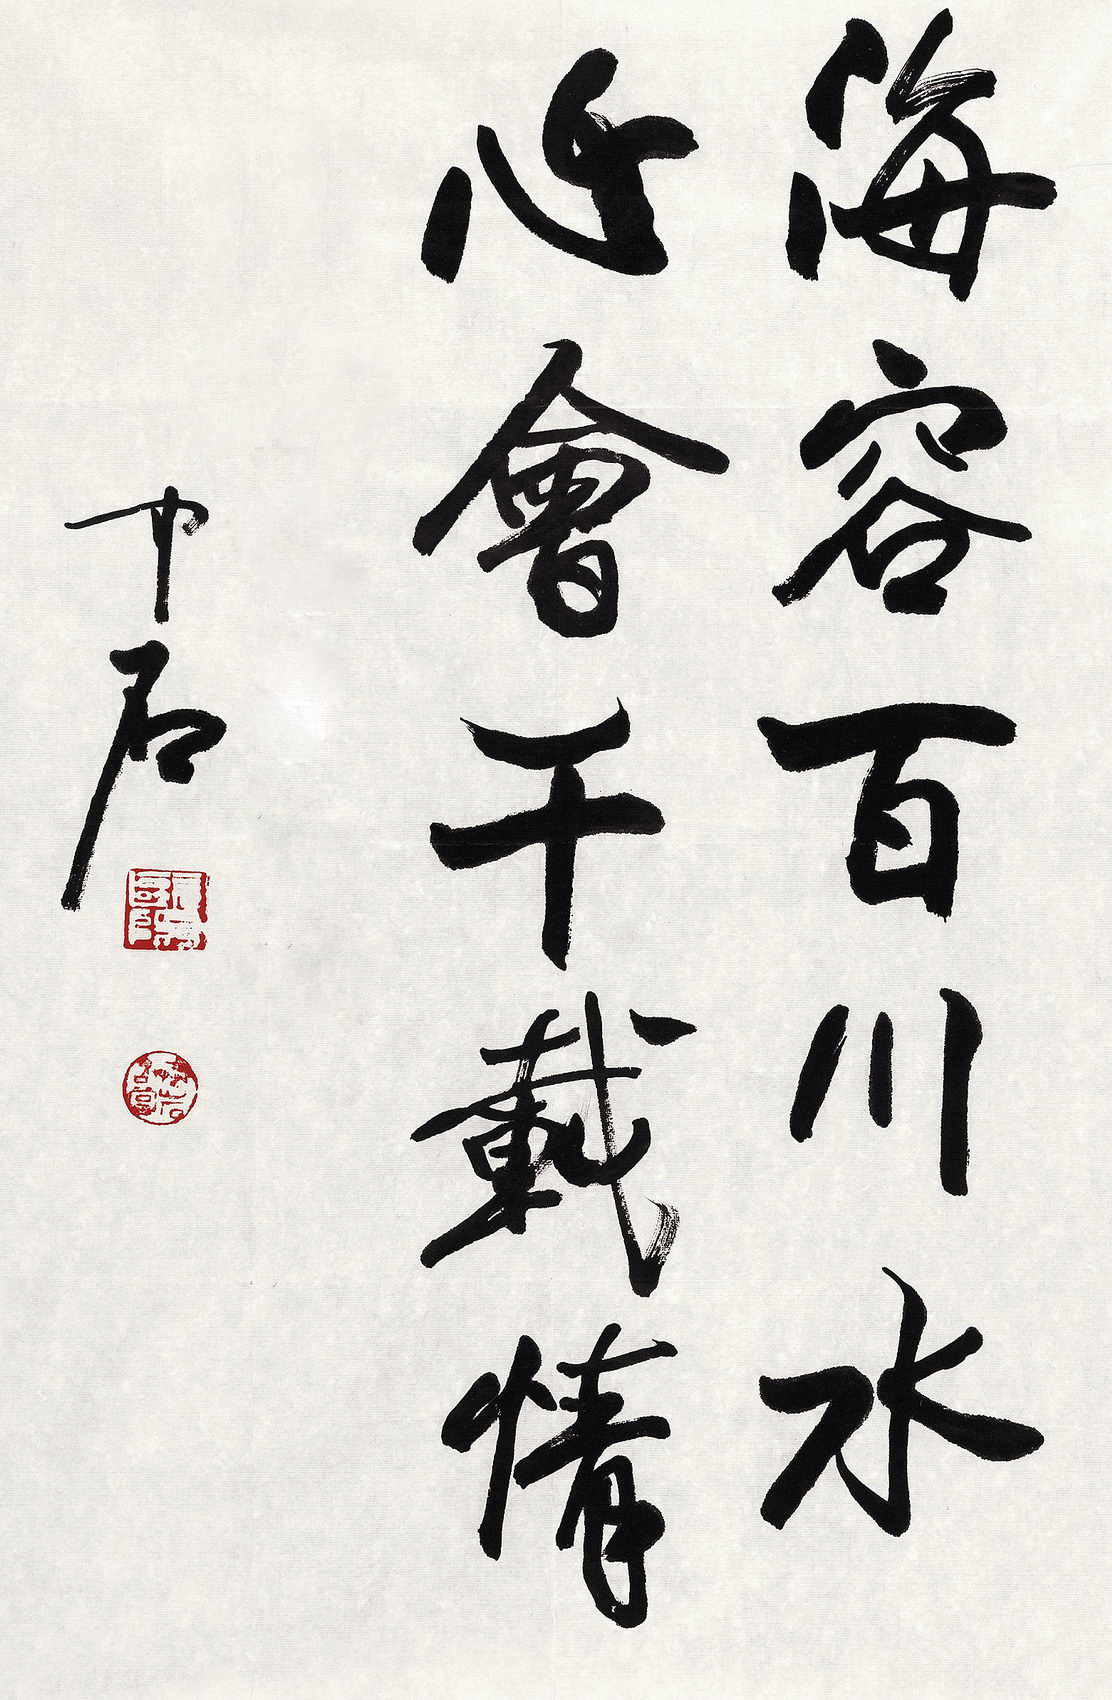 海容百川水
心會千載情
中石